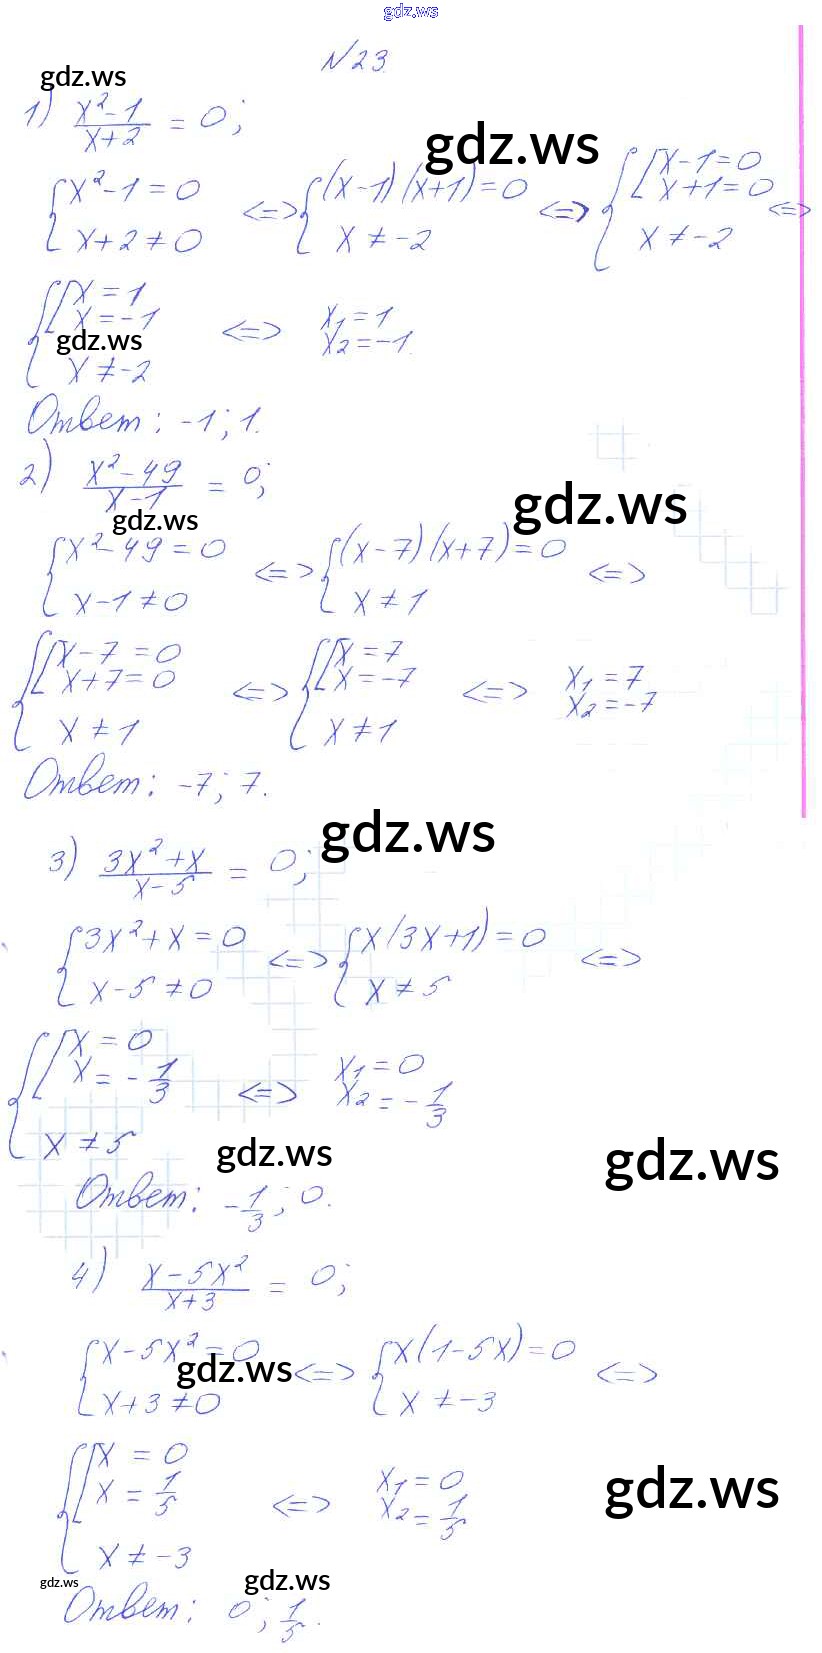 gdz.ws
№23.
gdz.ws
1) (x²-1)/(x+2) = 0;
gdz.ws
{x²-1=0; x+2≠0 <=> {(x-1)(x+1)=0; x≠-2 <=> {[x-1=0; x+1=0; x≠-2 <=>
{[x=1; x=-1; x≠-2 <=> x₁=1 x₂=-1.
gdz.ws
Ответ: -1; 1.
2) (x²-49)/(x-1) = 0;
gdz.ws
gdz.ws
{x²-49=0; x-1≠0 <=> {(x-7)(x+7)=0; x≠1 <=>
{[x-7=0; x+7=0; x≠1 <=> {[x=7; x=-7; x≠1 <=> x₁=7 x₂=-7
Ответ: -7; 7.
gdz.ws
3) (3x²+x)/(x-5) = 0;
{3x²+x=0; x-5≠0 <=> {x(3x+1)=0; x≠5 <=>
{[x=0; x=-1/3; x≠5 <=> x₁=0 x₂=-1/3
gdz.ws
gdz.ws
Ответ: -1/3; 0.
4) (x-5x²)/(x+3) = 0;
{x-5x²=0; x+3≠0 <=> {x(1-5x)=0; x≠-3 <=>
gdz.ws
{[x=0; x=1/5; x≠-3 <=> x₁=0 x₂=1/5
gdz.ws
gdz.ws
gdz.ws
Ответ: 0; 1/5.